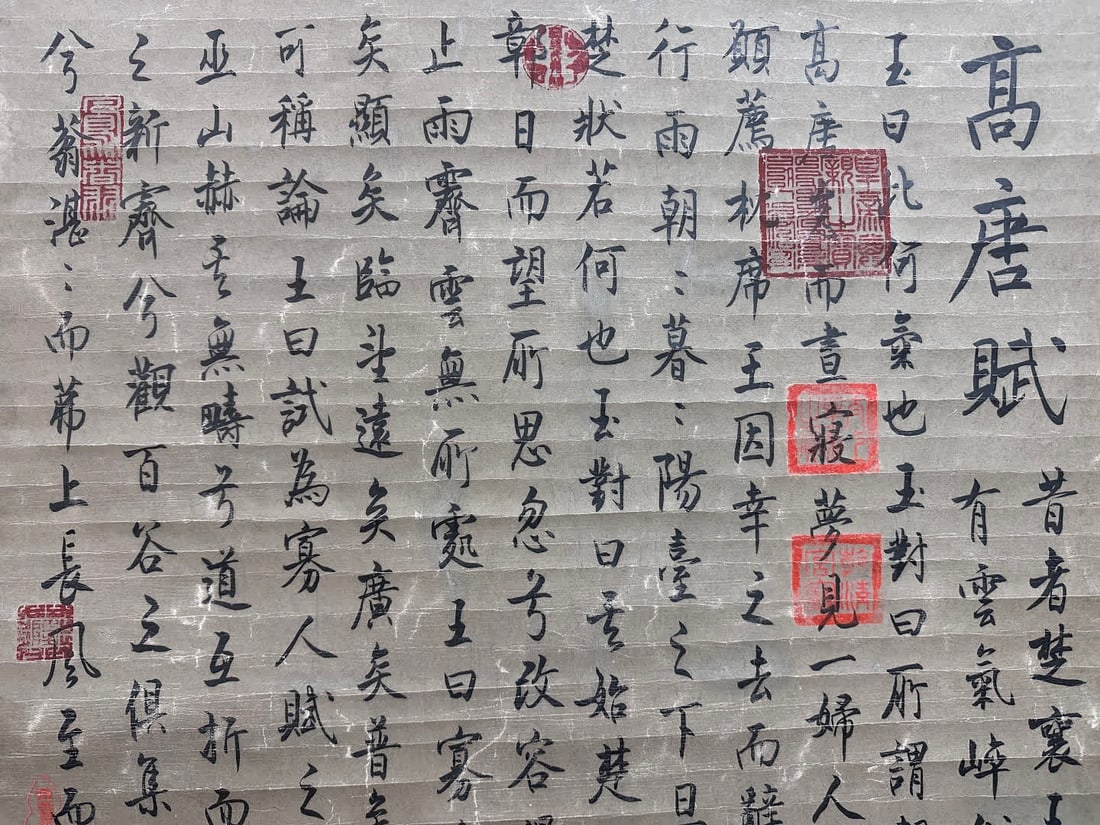 高唐賦
昔者楚襄王
有雲氣崪
玉曰此何氣也玉對曰所謂
高唐怠而晝寢夢見一婦人
願薦枕席王因幸之去而辭
行雨朝〻暮〻陽臺之下
楚狀若何也玉對曰其始楚
鄣日而望所思忽兮改容
止雨霽雲無所處王曰寡
矣顯矣臨望遠矣廣矣普
可稱論王曰試為寡人賦之
巫山赫其無疇兮道互折而
之新霽兮觀百谷之俱集
兮蓊湛〻而茀上長風至而